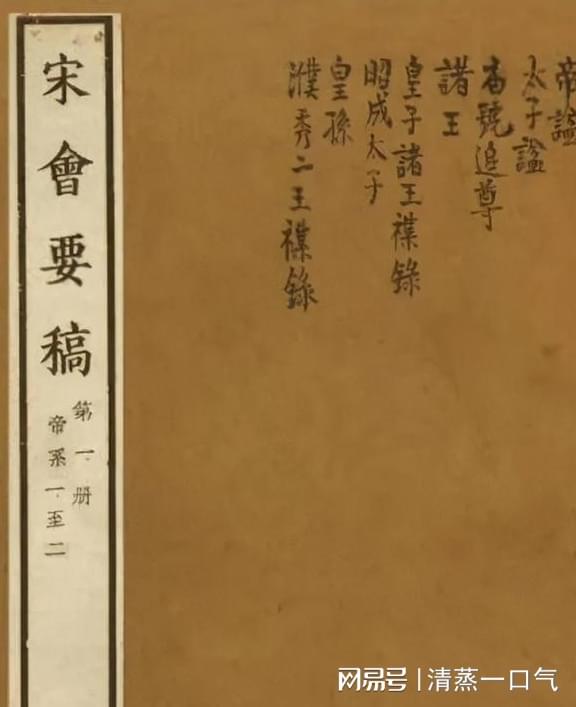 帝謚
太子謚
號追尊
諸王
皇子諸王襍錄
昭成太子
皇孫
濮秀二王襍錄
宋會要稿
第一册
帝系一至二
网易号 | 清蒸一口气